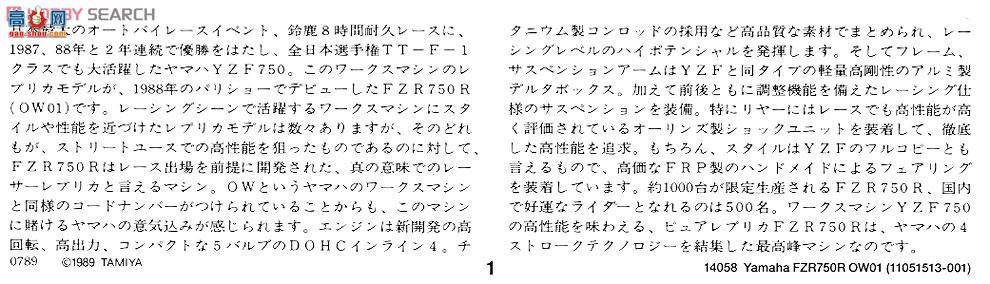 HOBBY SEARCH
日本最大のオートバイレースイベント、鈴鹿8時間耐久レースに、
1987、88年と2年連続で優勝をはたし、全日本選手権TT-F-1
クラスでも大活躍したヤマハYZF750。このワークスマシンのレ
プリカモデルが、1988年のパリショーでデビューしたFZR750R
(OW01)です。レーシングシーンで活躍するワークスマシンにスタ
イルや性能を近づけたレプリカモデルは数々ありますが、そのどれ
もが、ストリートユースでの高性能を狙ったものであるのに対して、
FZR750Rはレース出場を前提に開発された、真の意味でのレー
サーレプリカと言えるマシン。OWというヤマハのワークスマシン
と同様のコードナンバーがつけられていることからも、このマシン
に賭けるヤマハの意気込みが感じられます。エンジンは新開発の高
回転、高出力、コンパクトな5バルブのDOHCインライン4。チ
タニウム製コンロッドの採用など高品質な素材でまとめられ、レー
シングレベルのハイポテンシャルを発揮します。そしてフレーム、
サスペンションアームはYZFと同タイプの軽量高剛性のアルミ製
デルタボックス。加えて前後ともに調整機能を備えたレーシング仕
様のサスペンションを装備。特にリヤーにはレースでも高性能が高
く評価されているオーリンズ製ショックユニットを装着して、徹底
した高性能を追求。もちろん、スタイルはYZFのフルコピーとも
言えるもので、高価なFRP製のハンドメイドによるフェアリング
を装着しています。約1000台が限定生産されるFZR750R、国内
で好運なライダーとなれるのは500名。ワークスマシンYZF750
の高性能を味わえる、ピュアレプリカFZR750Rは、ヤマハの4
ストロークテクノロジーを結集した最高峰マシンなのです。
0789 ©1989 TAMIYA
1
14058 Yamaha FZR750R OW01 (11051513-001)